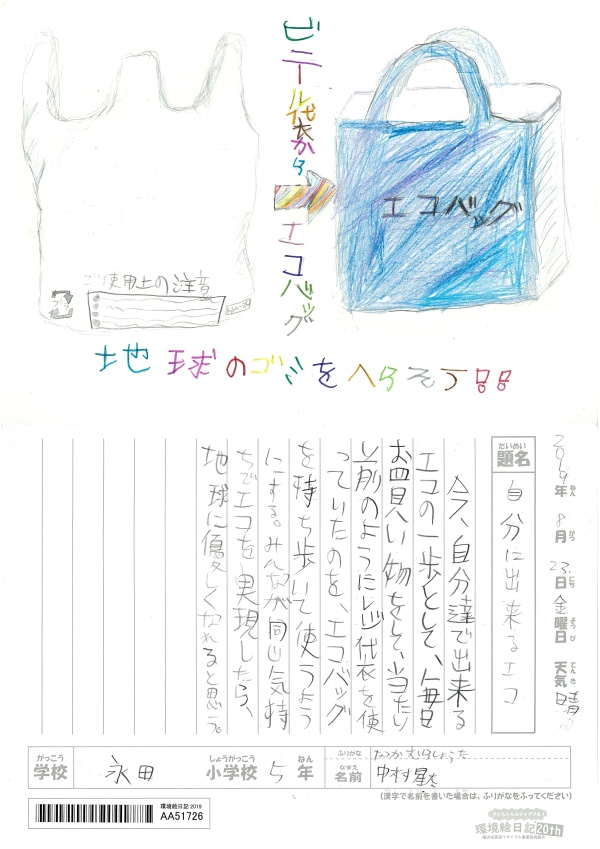 ビニール袋から
エコバッグ
エコバッグ
ご使用上の注意
プラ
地球のゴミをへらそう!!
2019年 8月 23日 金曜日 天気 晴
ねん がつ にち ようび てんき
だいめい
題名
自分に出来るエコ
今、自分達で出来る
エコの一歩として、毎日
お買い物をして、当たり
前のようにレジ袋を使
っていたのを、エコバッグ
を持ち歩いて使うよう
にする。みんなが同じ気持
ちでエコを実現したら、
地球に優しくなれると思う。
がっこう しょうがっこう ねん
学校 永田 小学校 5 年
ふりがな なかむらしょうた
なまえ
名前 中村
(漢字で名前を書いた場合は、ふりがなをふってください)
環境絵日記 2019
AA51726
環境絵日記20th